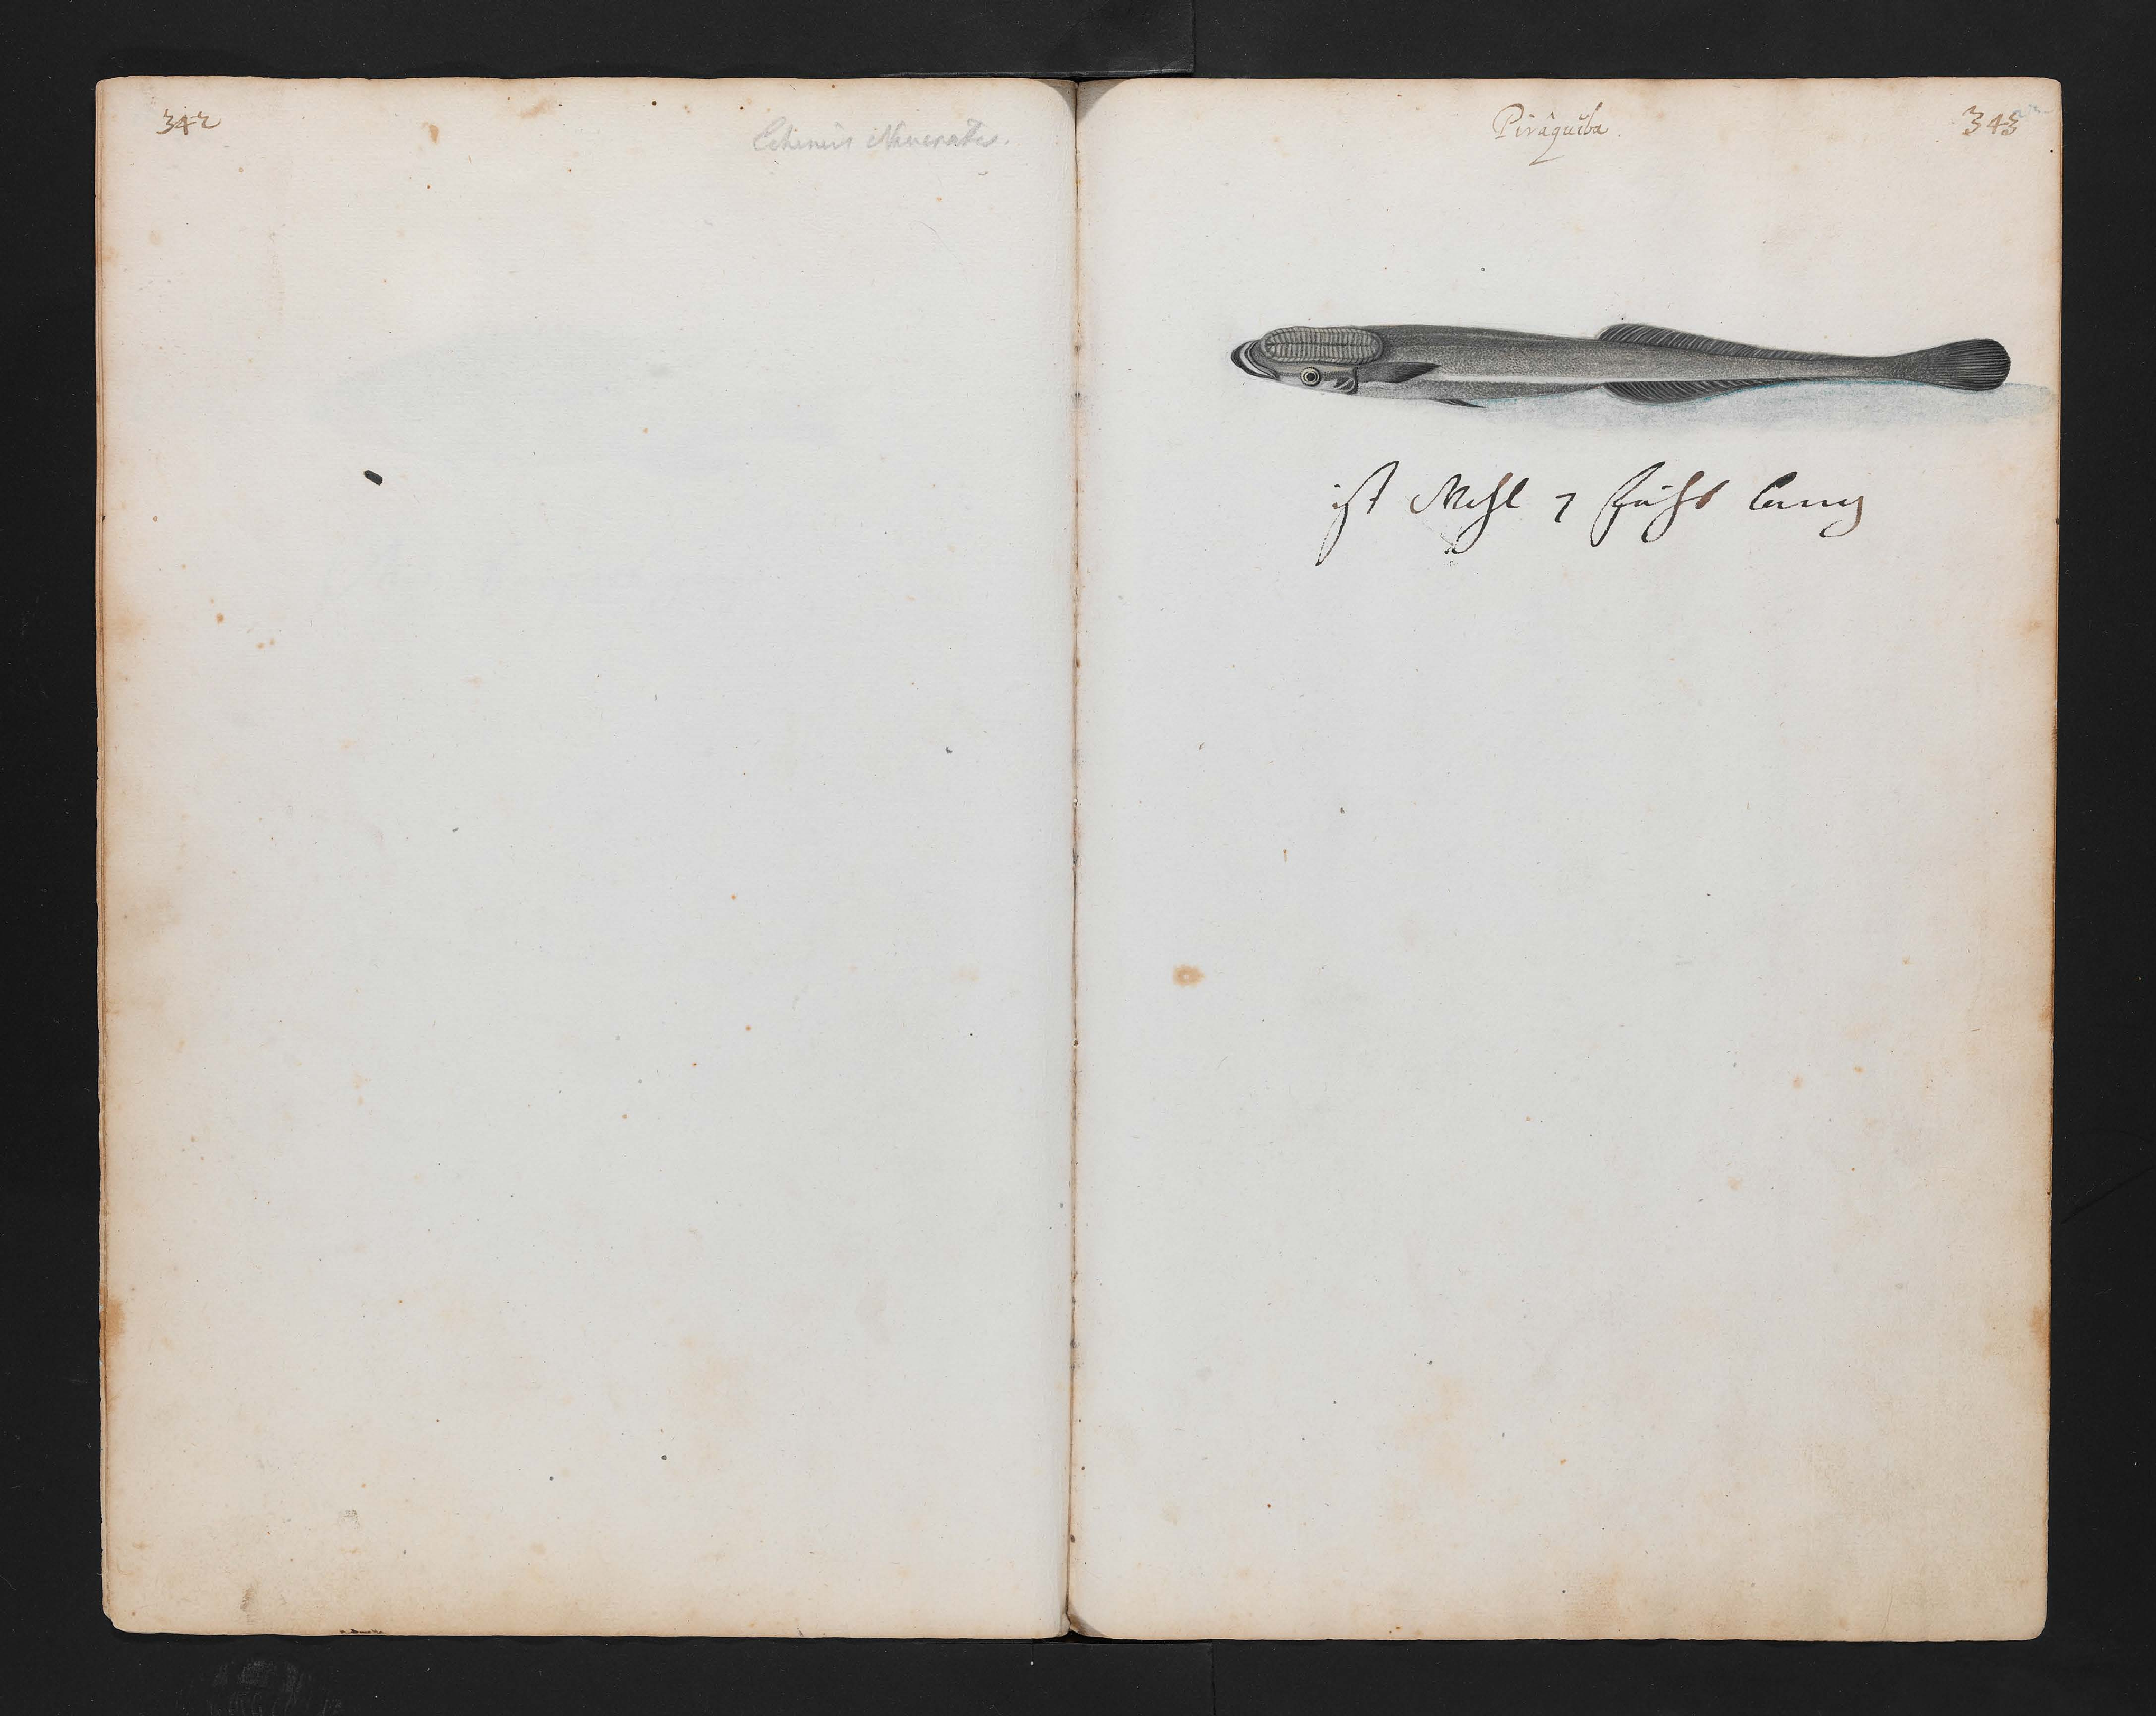 342
Echeneis Neucrates.
Piraquiba.
343
ist Wohl 7 fuhs lang